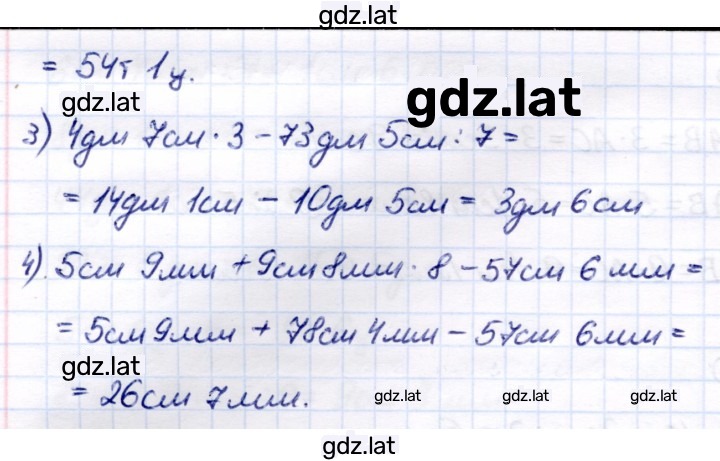 gdz.lat
= 54т 1ц.
gdz.lat
gdz.lat
3) 4дм 7см · 3 - 73дм 5см : 7 =
= 14дм 1см - 10дм 5см = 3дм 6см
4). 5см 9мм + 9см 8мм · 8 - 57см 6мм =
= 5см 9мм + 78см 4мм - 57см 6мм =
gdz.lat
= 26см 7мм.
gdz.lat gdz.lat gdz.lat
gdz.lat